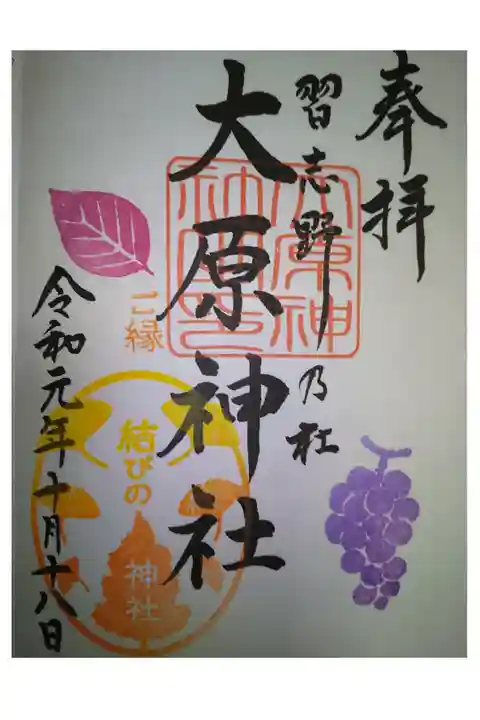 奉拝
習志野乃杜
大原神社
大原神
社印
ご縁
結びの
神社
令和元年十月十八日